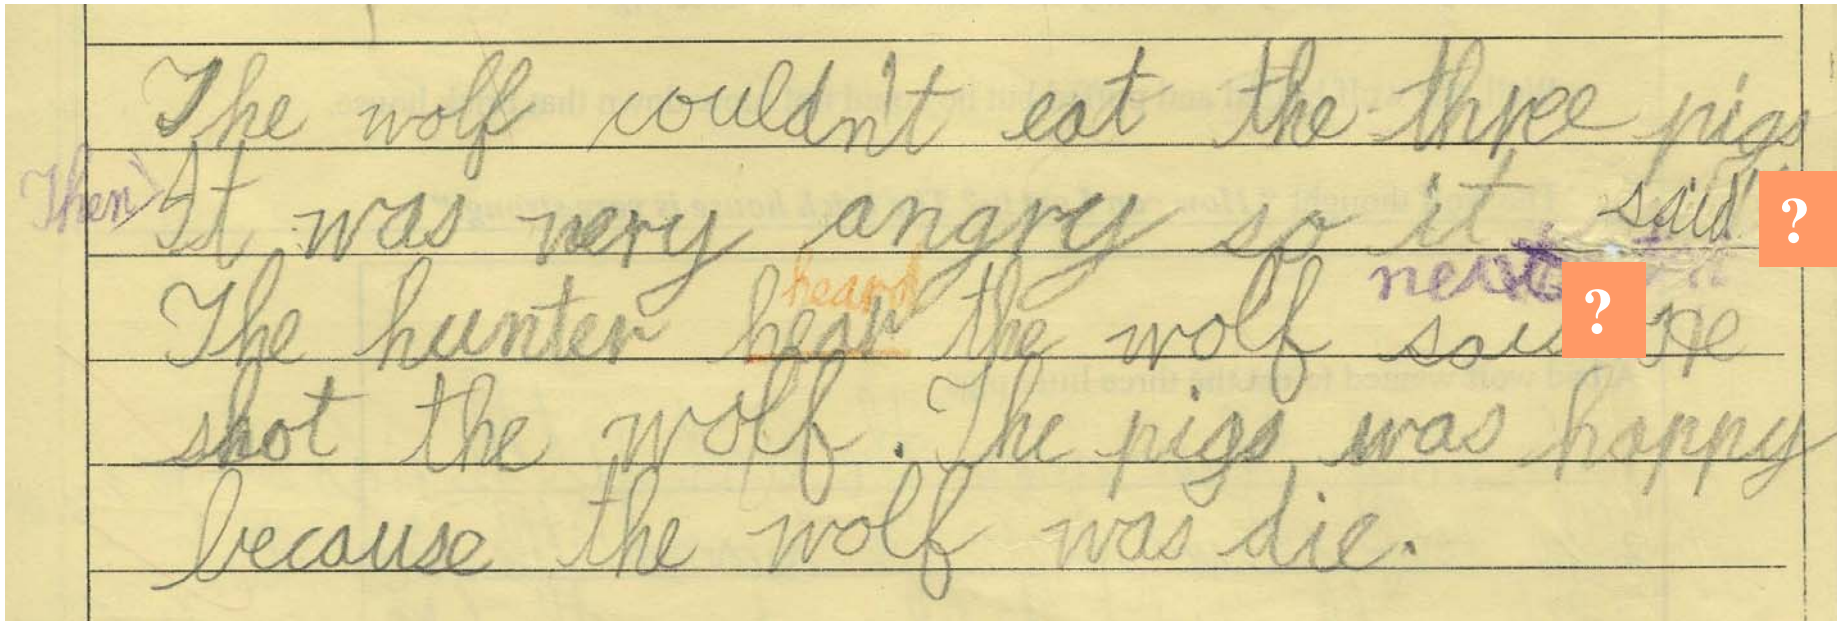 The wolf couldn't eat the three pigs
Then It was very angry so it said ?
heard next ?
The hunter hear the wolf said He
shot the wolf. The pigs was happy
because the wolf was die.